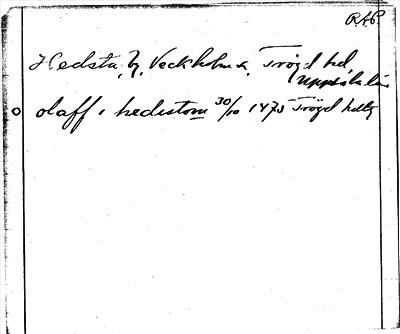 RAP
Hedsta, Y. Veckholm s, Trögd hd
Uppsala län
olaff i hedistom 30/10 1475 Trögd häll